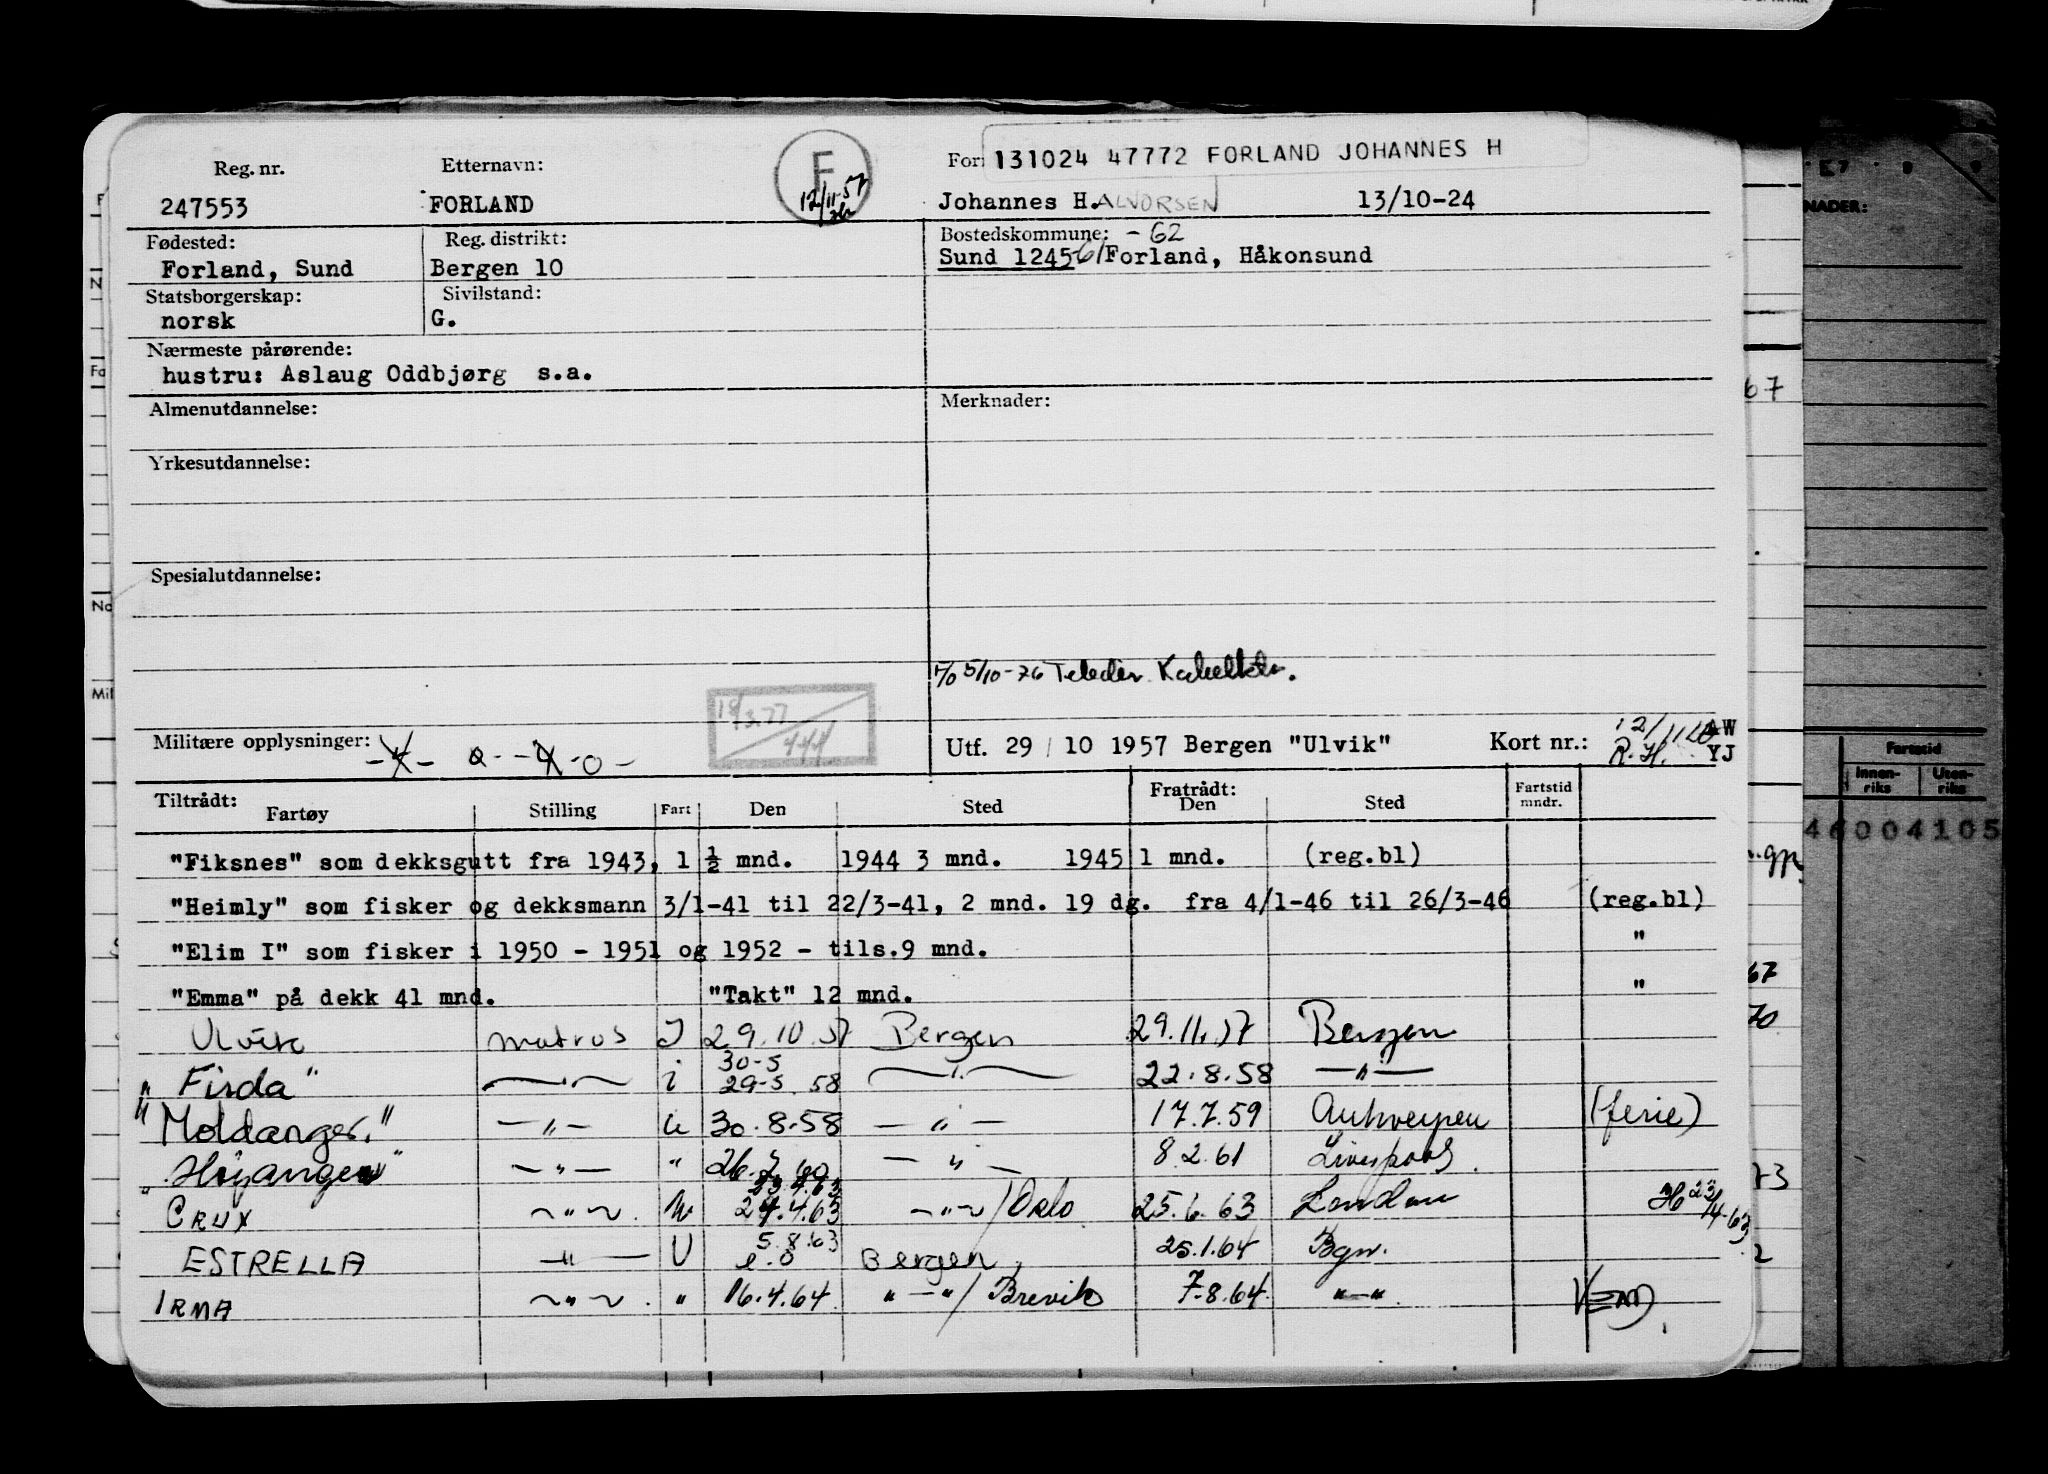 Reg. nr. Etternavn: F For: 131024 47772 FORLAND JOHANNES H
247553 FORLAND 12/11-57 Johannes H. ALVORSEN 13/10-24
Fødested: Reg. distrikt: Bostedskommune: -62
Forland, Sund Bergen 10 Sund 1245-61 Forland, Håkonsund
Statsborgerskap: Sivilstand:
norsk G.
Nærmeste pårørende:
hustru: Aslaug Oddbjørg s.a.
Almenutdannelse: Merknader:
Yrkesutdannelse:
Spesialutdannelse:
5/10-76 Teledir.
18/3.77
Militære opplysninger: Utf. 29/10 1957 Bergen "Ulvik" Kort nr.: R.H. AW YJ
Tiltrådt: Fratrådt: Fartstid mndr.
Fartøy Stilling Fart Den Sted Den Sted
"Fiksnes" som dekksgutt fra 1943, 1 ½ mnd. 1944 3 mnd. 1945 1 mnd. (reg.bl)
"Heimly" som fisker og dekksmann 3/1-41 til 22/3-41, 2 mnd. 19 dg. fra 4/1-46 til 26/3-46 (reg.bl)
"Elim I" som fisker i 1950 - 1951 og 1952 - tils.9 mnd. "
"Emma" på dekk 41 mnd. "Takt" 12 mnd. "
Ulvik matros I 29.10.57 Bergen 29.11.57 Bergen
"Firda" —"— i 30-5 29-5.58 —"— 22.8.58 —"—
"Moldanger." —"— u 30.8.58 —"— 17.7.59 Antwerpen (ferie)
"Høyanger" —"— " 26.2.60 —"— 8.2.61 Liverpool.
CRUX —"— 23.4.63 24.4.63 —"— / Oslo 25.6.63 London 23/4-63
ESTRELLA —"— U 5.8.63 e.o Bergen 25.1.64 Bgn.
IRMA —"— " 16.4.64 "—" / Brevik 7.8.64 "—" VEND.
NADER:
67
Fartstid
Innen- riks Uten- riks
46004105
67
70
73
2